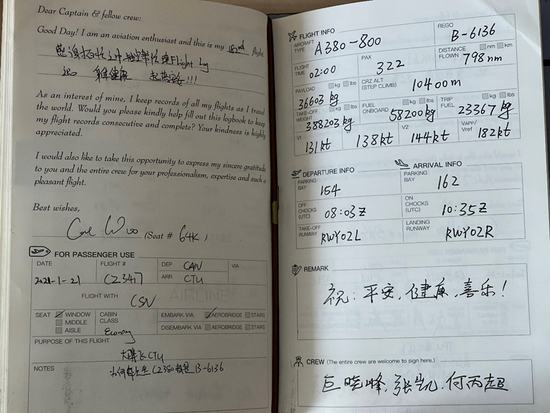 Dear Captain & fellow crew:
Good Day! I am an aviation enthusiast and this is my flight.
Flight Log
身体健康 起落安!!!
As an interest of mine, I keep records of all my flights as I travel
the world. Would you please kindly help fill out this logbook to keep
my flight records consecutive and complete? Your kindness is highly
appreciated.
I would also like to take this opportunity to express my sincere gratitude
to you and the entire crew for your professionalism, expertise and such a
pleasant flight.
Best wishes,
(Seat # 64K )
FOR PASSENGER USE
DATE FLIGHT # DEP CAN VIA
2021-1-21 CZ3471 ARR CTU
FLIGHT WITH
CSN
SEAT WINDOW CABIN CLASS EMBARK VIA AEROBRIDGE STAIRS
MIDDLE
AISLE Economy DISEMBARK VIA AEROBRIDGE STAIRS
PURPOSE OF THIS FLIGHT
大胖飞CTU
NOTES B-6136
FLIGHT INFO
AIRCRAFT TYPE A380-800 REGO B-6136
FLIGHT TIME 02:00 PAX 322 DISTANCE FLOWN nm km 798nm
PAYLOAD kg lbs 36603 kg CRZ ALT (STEP CLIMB) 10400m
TAKE-OFF WEIGHT kg lbs 388203 kg FUEL ONBOARD kg lbs 58200 kg TRIP FUEL kg lbs 23367 kg
V1 131kt VR 138kt V2 144kt Vapp/Vref 182kt
DEPARTURE INFO ARRIVAL INFO
PARKING BAY 154 PARKING BAY 162
OFF CHOCKS (UTC) 08:03Z ON CHOCKS (UTC) 10:35Z
TAKE-OFF RUNWAY RWY02L LANDING RUNWAY RWY02R
REMARK
祝:平安,健康,喜乐!
CREW (The entire crew are welcome to sign here.)
巨晓峰,张凯,何丙超